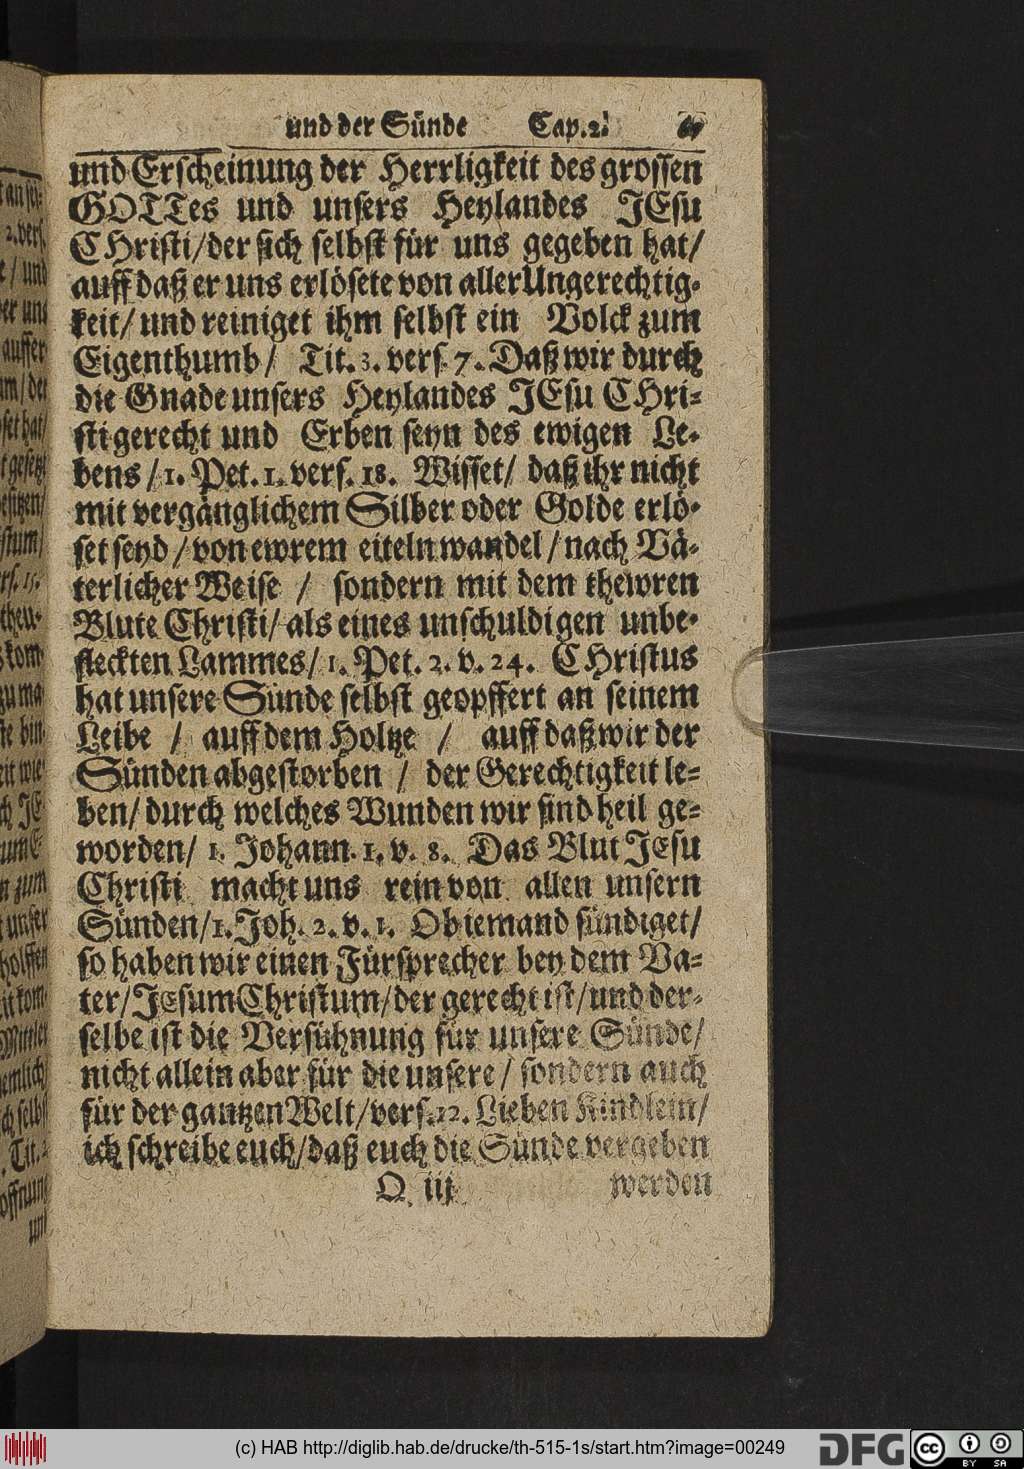 und der Sünde Cap. 2.
und Erscheinung der Herrligkeit des grossen
GOTTes und unsers Heylandes JEsu
CHristi/ der sich selbst für uns gegeben hat/
auff daß er uns erlösete von aller Ungerechtig-
keit/ und reiniget ihm selbst ein Volck zum
Eigenthumb/ Tit. 3. vers. 7. Daß wir durch
die Gnade unsers Heylandes JEsu CHri-
sti gerecht und Erben seyn des ewigen Le-
bens/ 1. Pet. 1. vers. 18. Wisset/ daß ihr nicht
mit vergänglichem Silber oder Golde erlö-
set seyd/ von ewrem eiteln wandel/ nach Vä-
terlicher Weise / sondern mit dem thewren
Blute Christi/ als eines unschuldigen unbe-
fleckten Lammes/ 1. Pet. 2. v. 24. CHristus
hat unsere Sünde selbst geopffert an seinem
Leibe / auff dem Holtze / auff daß wir der
Sünden abgestorben / der Gerechtigkeit le-
ben/ durch welches Wunden wir sind heil ge-
worden/ 1. Johann. 1. v. 8. Das Blut JEsu
Christi macht uns rein von allen unsern
Sünden/ 1. Joh. 2. v. 1. Ob iemand sündiget/
so haben wir einen Fürsprecher bey dem Va-
ter/ JEsum Christum/ der gerecht ist/ und der-
selbe ist die Versühnung für unsere Sünde/
nicht allein aber für die unsere/ sondern auch
für der gantzen Welt/ vers. 12. Lieben Kindlein/
ich schreibe euch/ daß euch die Sünde vergeben
Q iij werden
(c) HAB http://diglib.hab.de/drucke/th-515-1s/start.htm?image=00249
DFG
cc BY SA